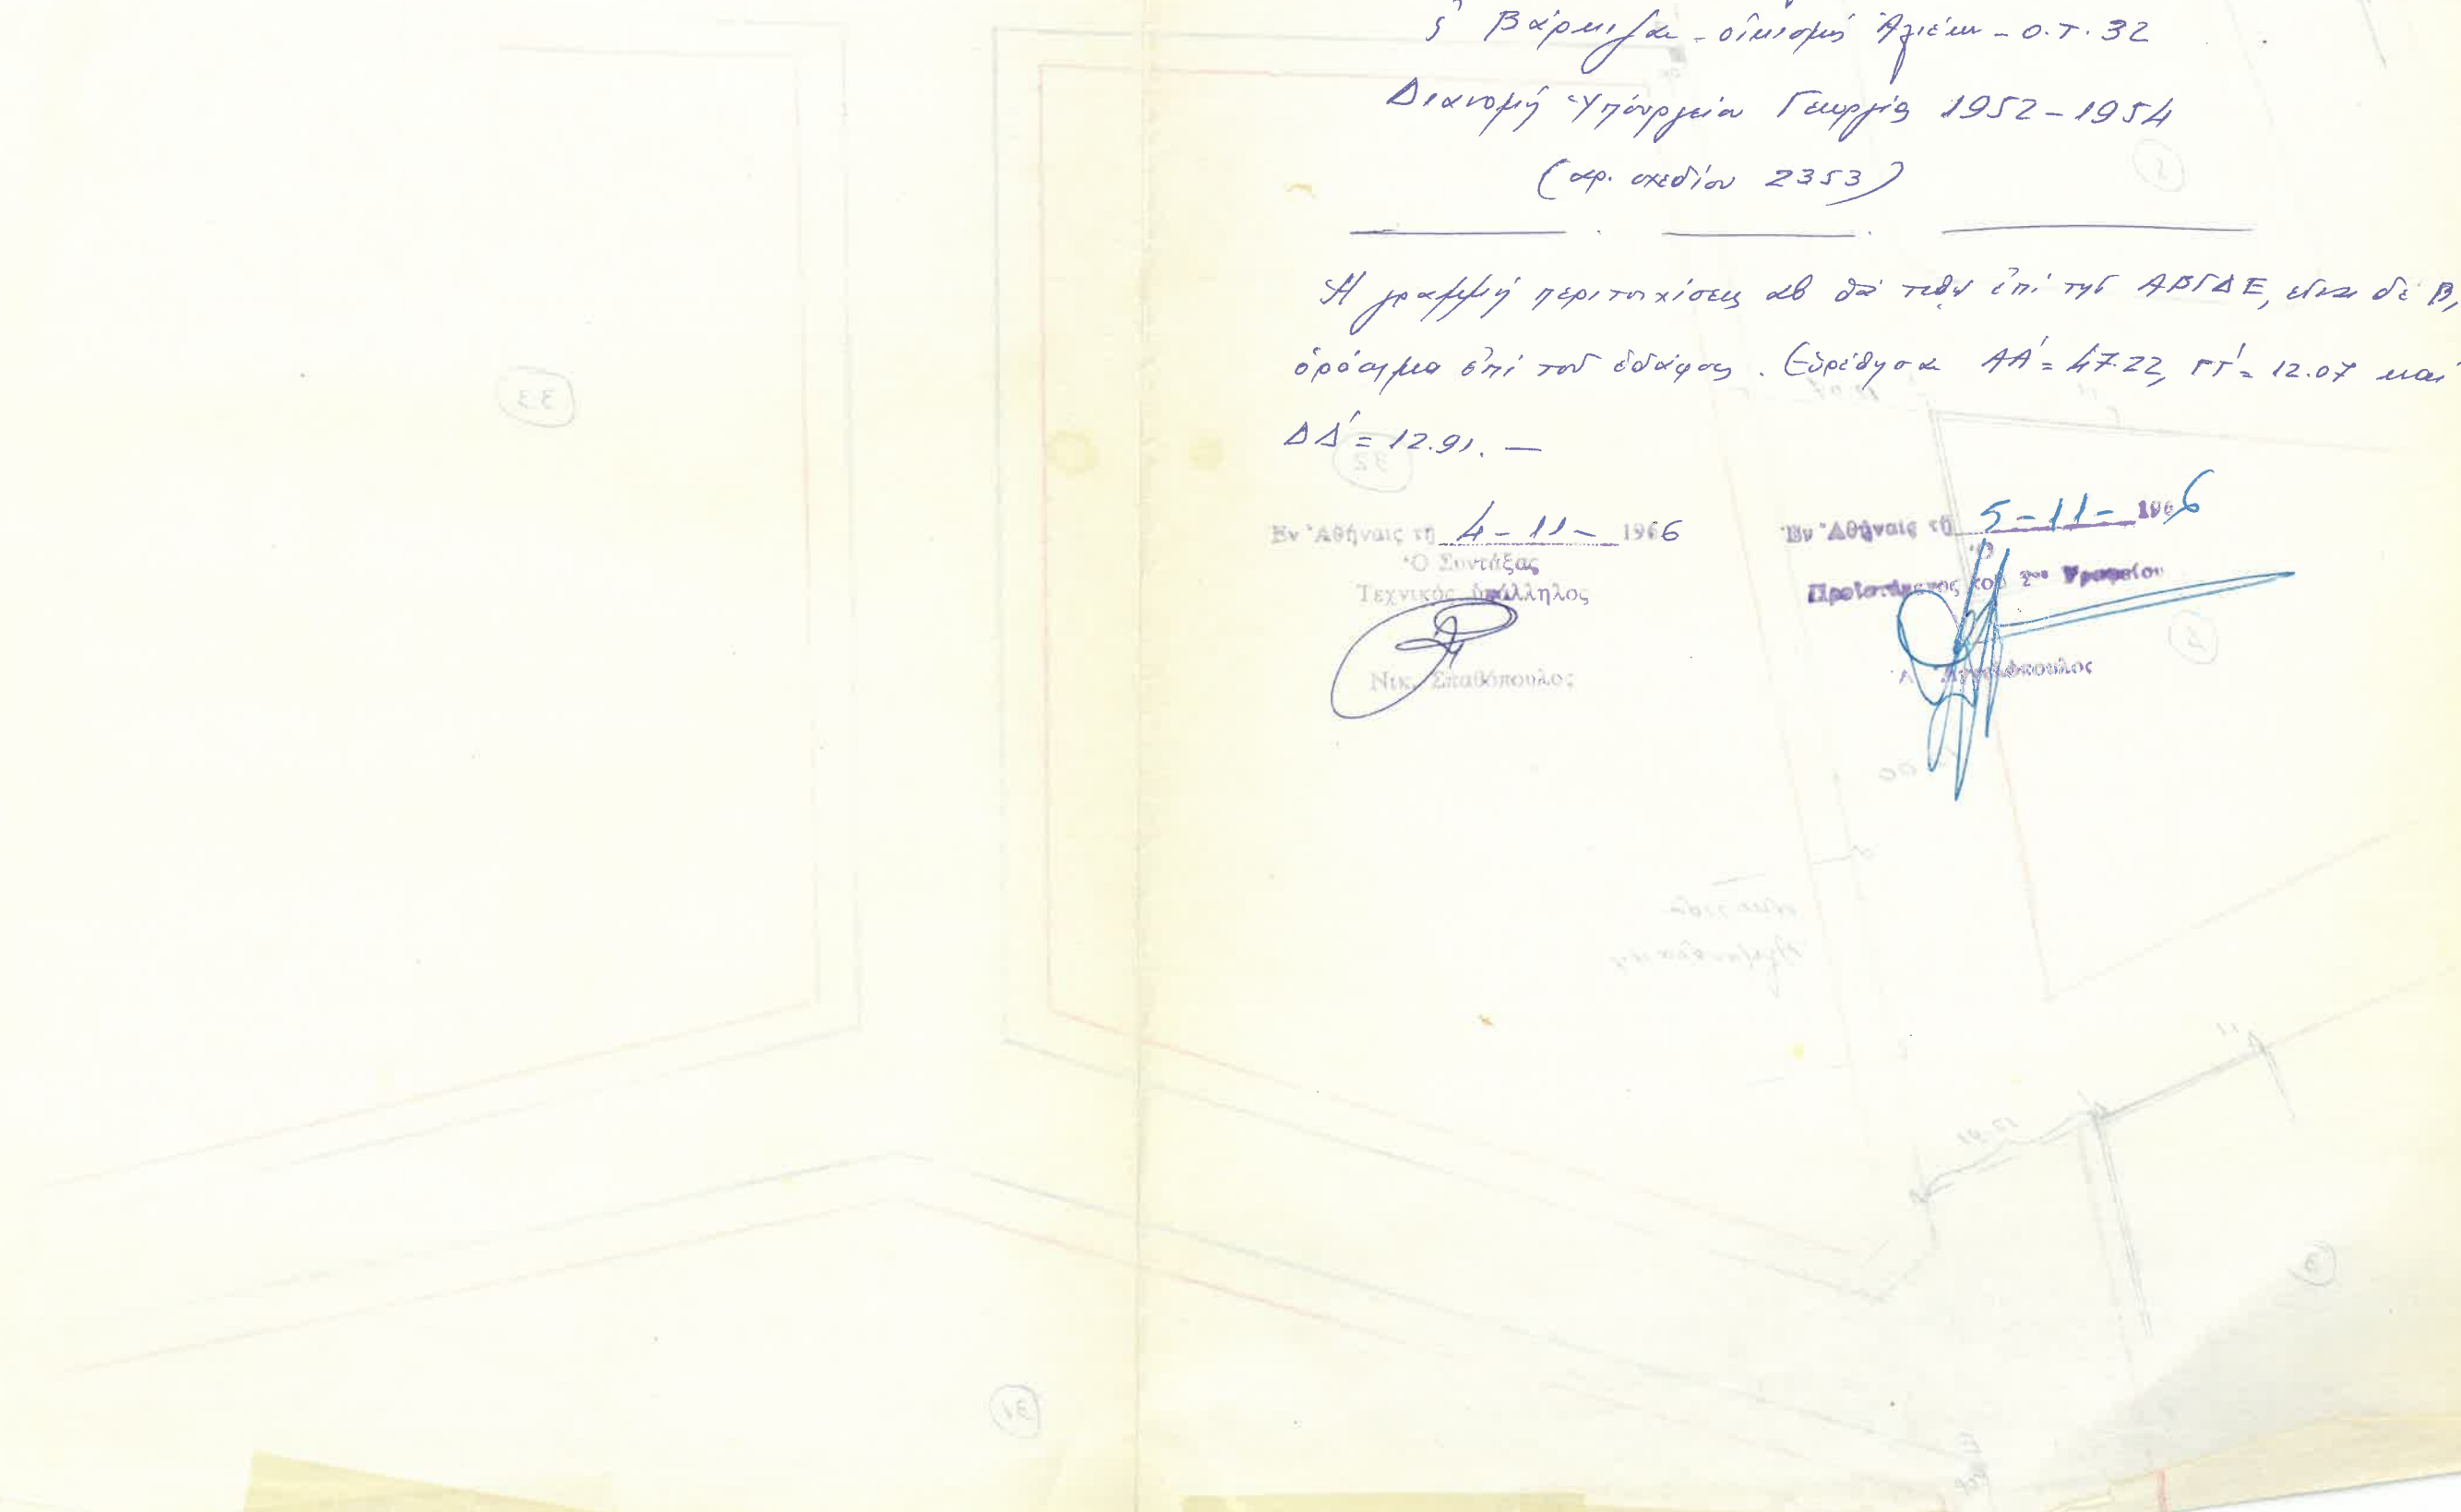 Βάρκιζα - οἰκισμός Ἁλιέων - Ο.Τ. 32
Διανομή Ὑπουργείου Γεωργίας 1952-1954
(αρ. σχεδίου 2353)
Ἡ γραμμή περιτοιχίσεως αβ θά τεθῇ ἐπί τῆς ΑΒΓΔΕ, εἶναι δέ Β,
ὁρόσημα ἐπί τοῦ ἐδάφους. Εὑρέθησαν ΑΑ' = 47.22, ΓΓ' = 12.07 καί
ΔΔ' = 12.91. —
Εν Ἀθήναις τῇ 4-11- 1966
Ὁ Συντάξας
Τεχνικός ὑπάλληλος
Νικ. Σπαθόπουλος
Ἐν Ἀθήναις τῇ 5-11- 1966
Ὁ
Προϊστάμενος τοῦ 2ου Γραφείου
Α Ἀγγελόπουλος
33
32
31
3
12.91